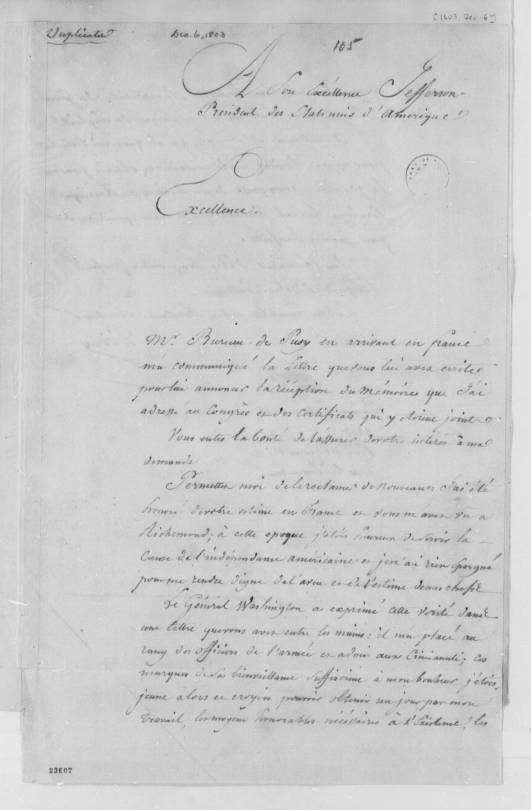 Duplicata
Dec. 6, 1803
[1803, Dec. 6]
105
A Son Excéllence Jefferson
President des Etats unis d'Amerique
Excellence
Mr. Bureau de Pusy en arrivant en france
m'a communiqué la Lettre que vous lui avez écrite
pour lui annoncer la réception du mémoires que J'ai
adressé au Congrès et des certificats qui y étoient joint
Vous eutes la bonté de l'assurer de votre intérés à ma
demande
Permettez moi de le reclamer de nouveau J'ai été
honoré de votre estime en France et vous m'avez vu a
Richemond, à cette epoque j'étois heureux de servir la
Cause de l'indépendance américaine et je n'ai rien épargné
pour me rendre digne de l'aveu et de l'estime de nos chefs
Le Général Washington a exprimé cette vérité dans
une lettre que vous avez entre les mains: il m'a placé au
rang des officiers de l'armée et admis aux Cincinnati; ces
marques de sa bienveillance suffisoient à mon bonheur j'étois
jeune alors et croyois pouvoir obtenir un jour par mon
travail, les moyens honorables nécéssaires à l'Existence; les
23607